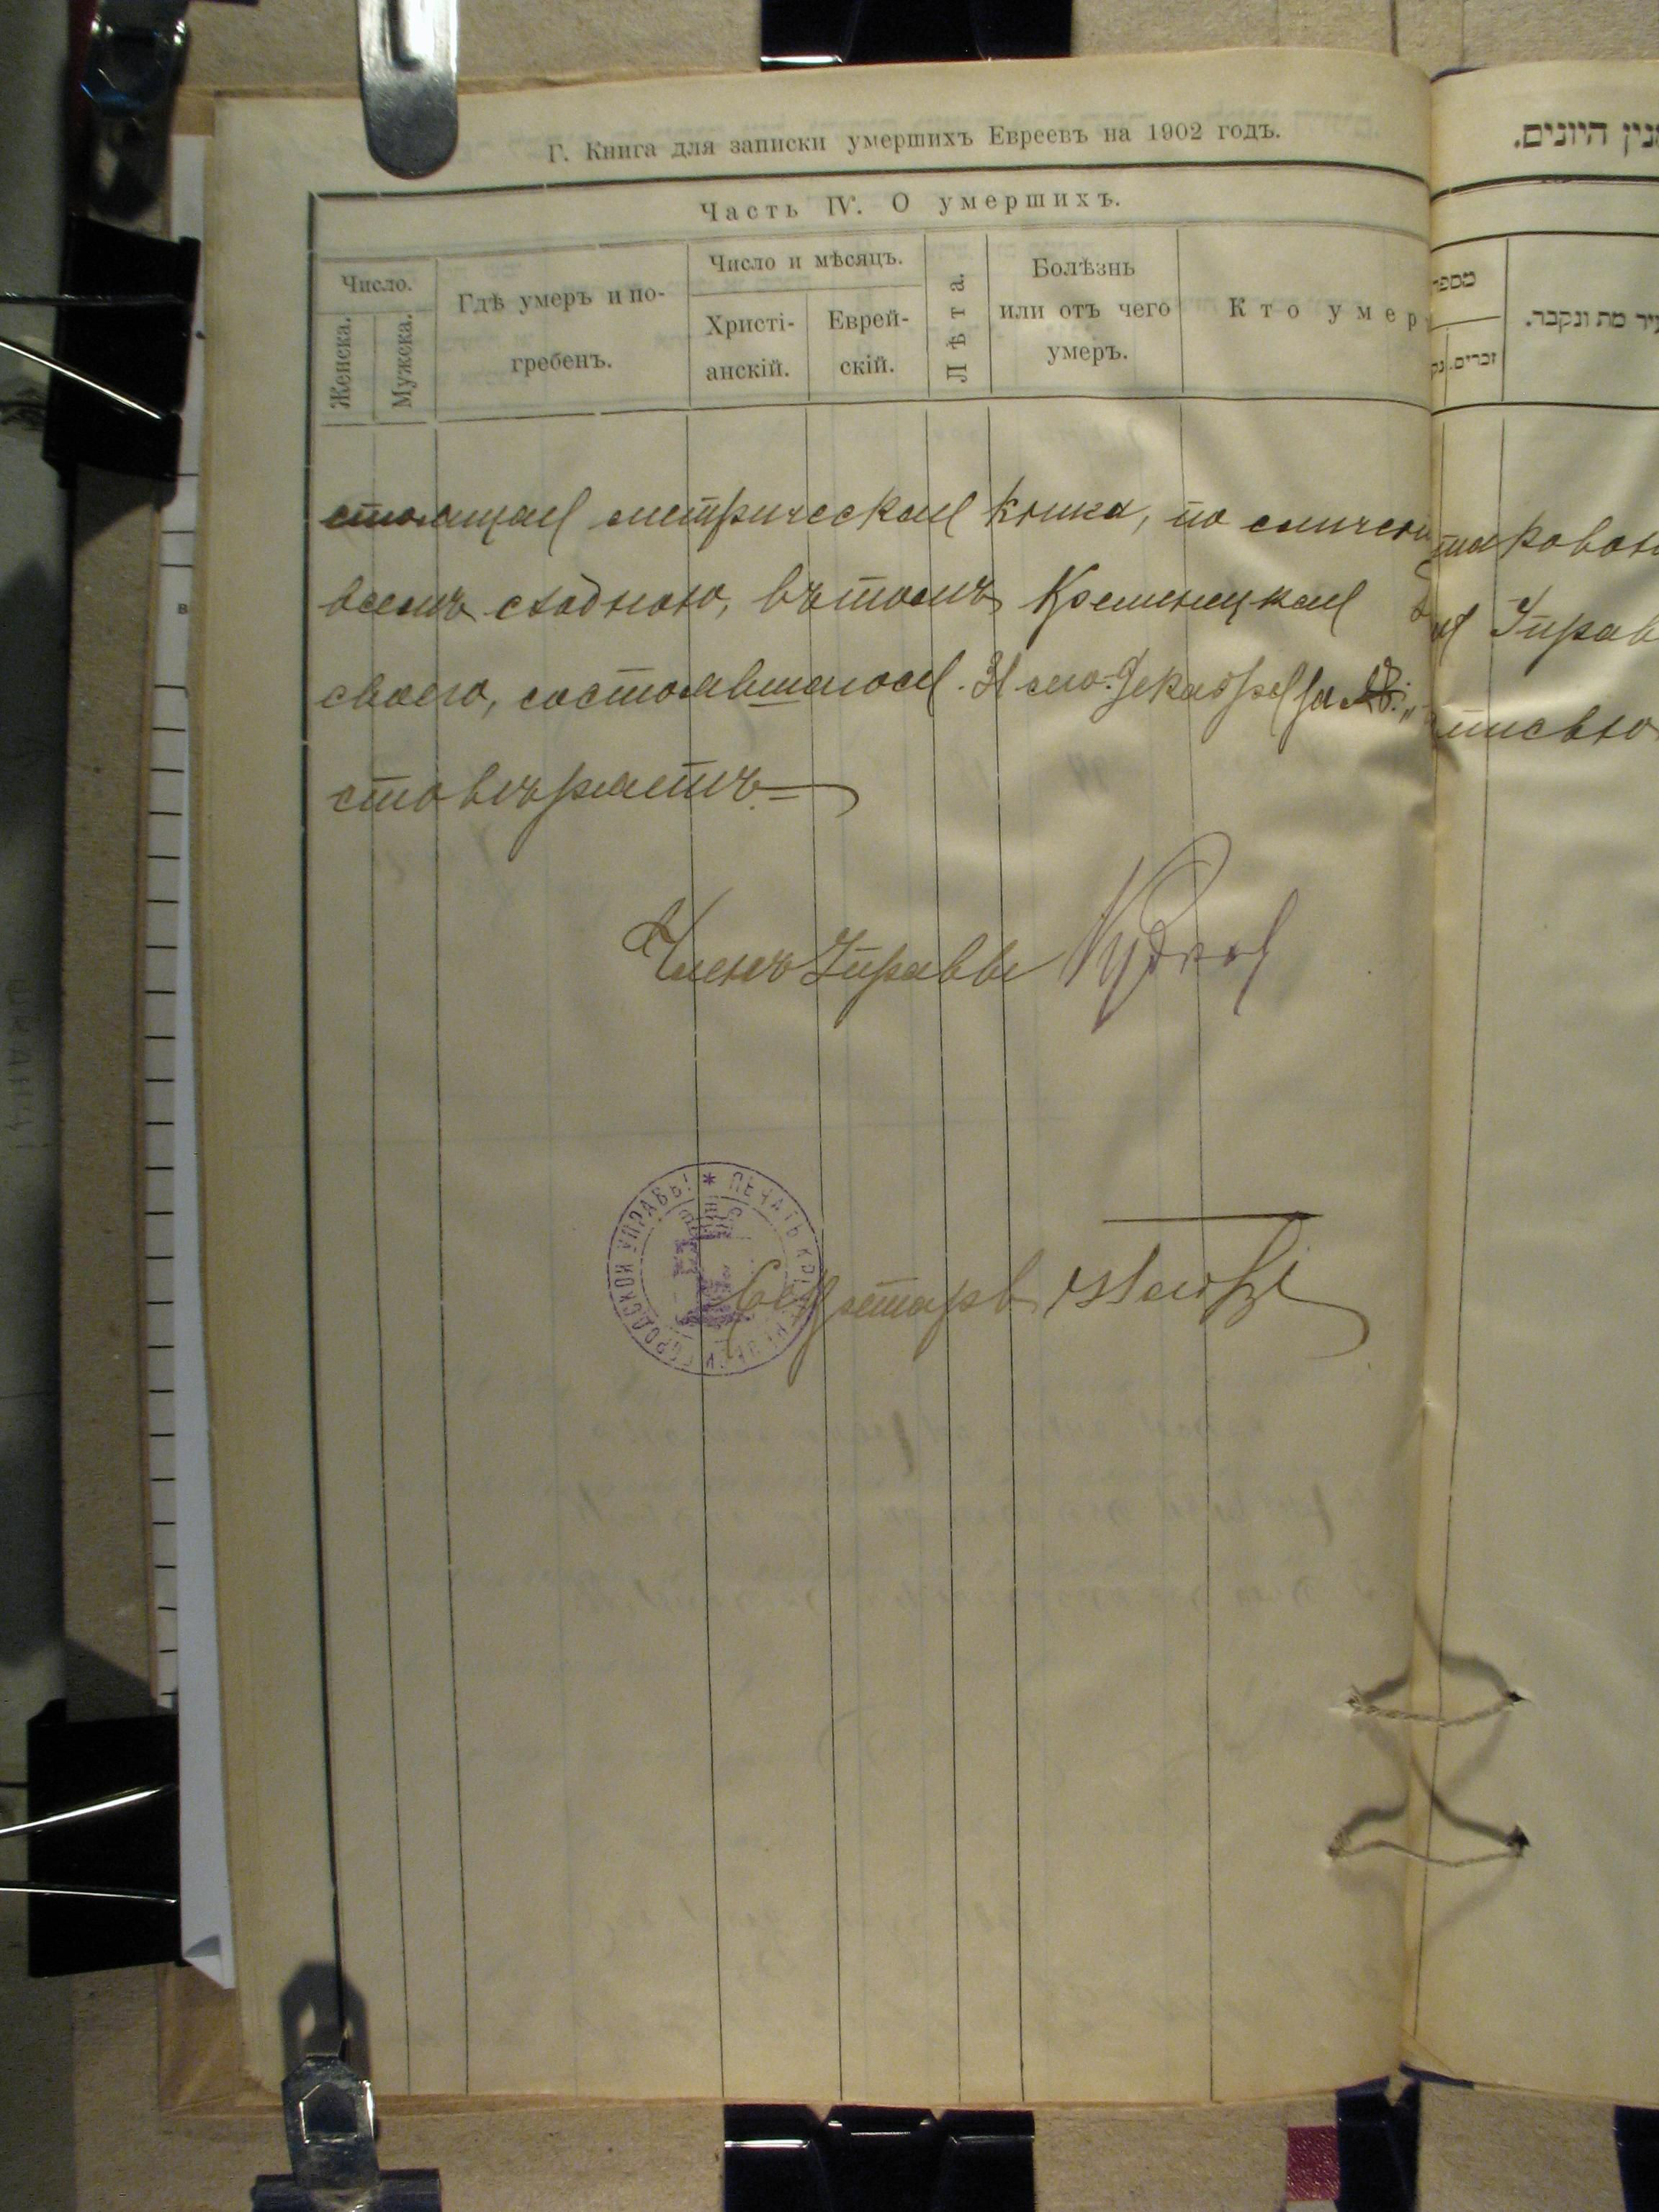 Г. Книга для записки умершихъ Евреевъ на 1902 годъ.
Часть IV. О умершихъ.
Число.
Женска.
Мужска.
Гдѣ умеръ и по-
гребенъ.
Число и мѣсяцъ.
Христі-
анскій.
Еврей-
скій.
Лѣта.
Болѣзнь
или отъ чего
умеръ.
Кто умер
стоящая метрическая книга, по сличен
всемъ сходною, въ томъ Кременецкая
своего, состоявшагося 31 сего Декабря за №
стовѣряетъ
Членъ Управы
ПЕЧАТЬ КРЕМЕНЕЦКОЙ ГОРОДСКОЙ УПРАВЫ
Секретарь
נין היונים.
מספר
זכרים.
עיר מת ונקבר.
таковою
Управ
писью